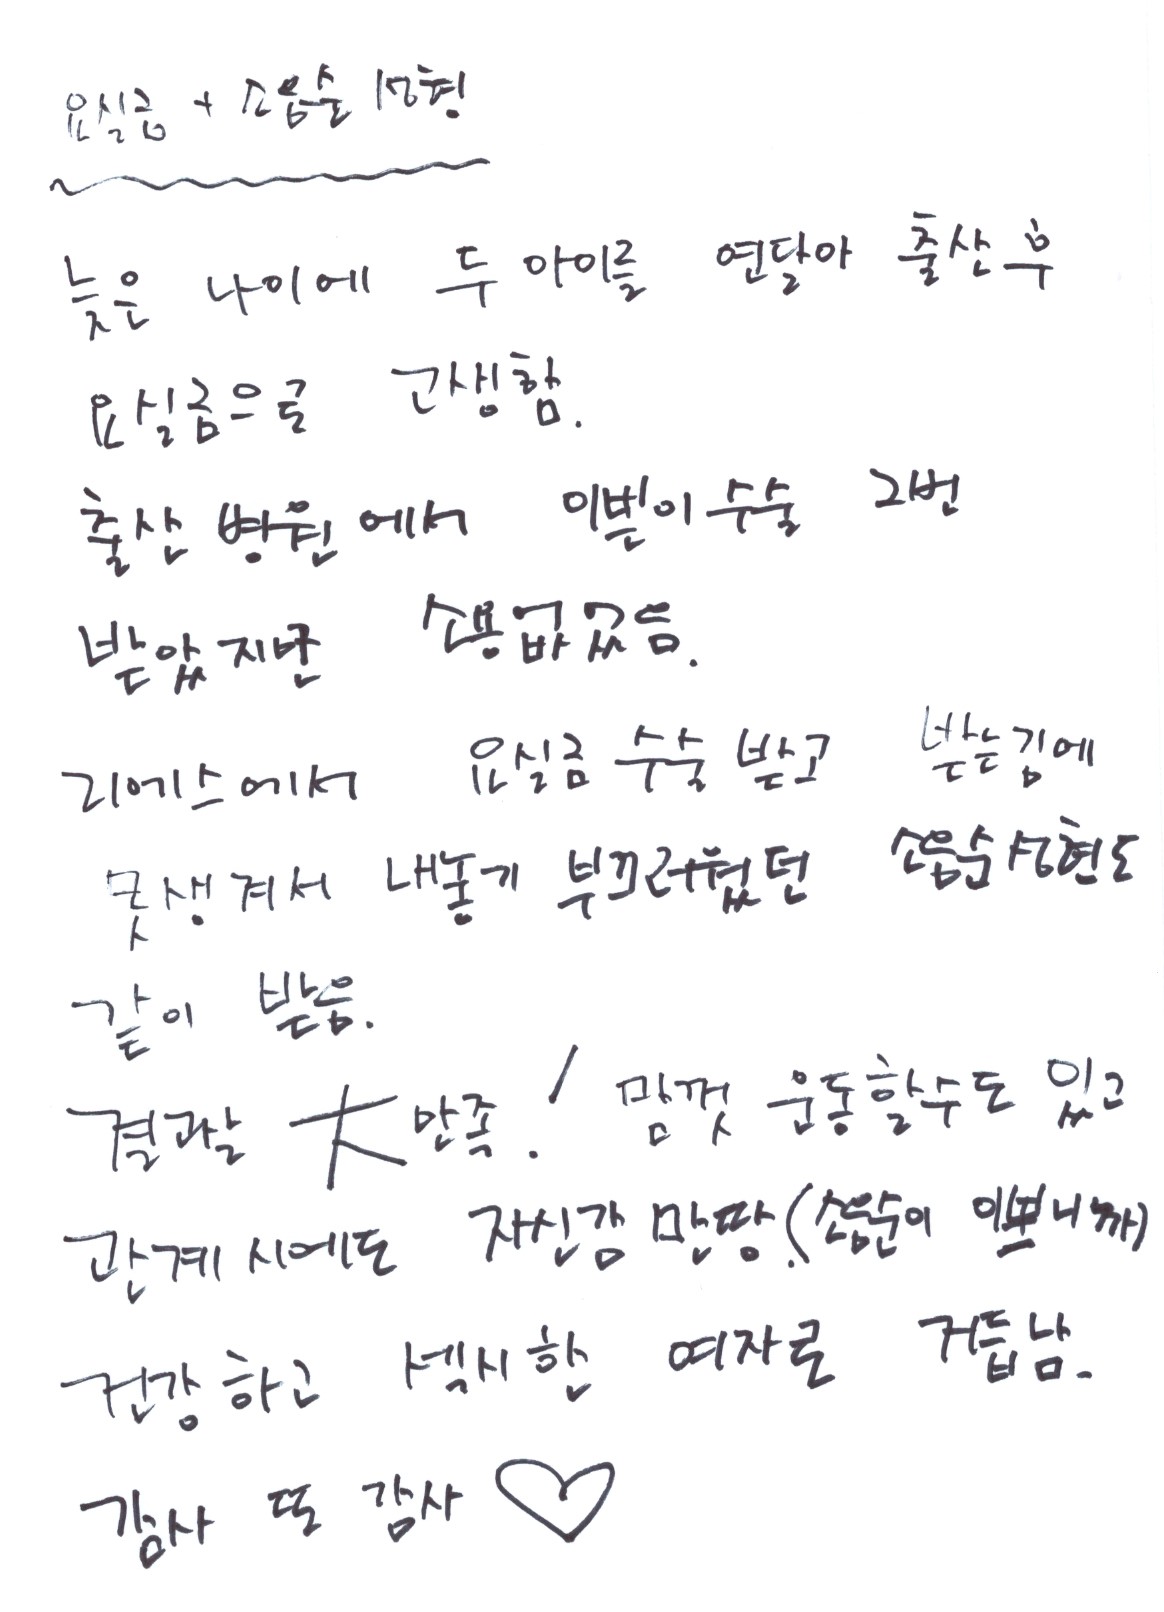 요실금 + 소음순 성형
늦은 나이에 두 아이를 연달아 출산 후
요실금으로 고생함.
출산 병원에서 이쁜이수술 2번
받았지만 소용없었음.
리에스에서 요실금 수술 받고 받는김에
못생겨서 내놓기 부끄러웠던 소음순성형도
같이 받음.
결과난 大만족! 맘껏 운동할수도 있고
관계시에도 자신감 만땅(소음순이 이쁘니까)
건강하고 섹시한 여자로 거듭남.
감사 또 감사 ♡